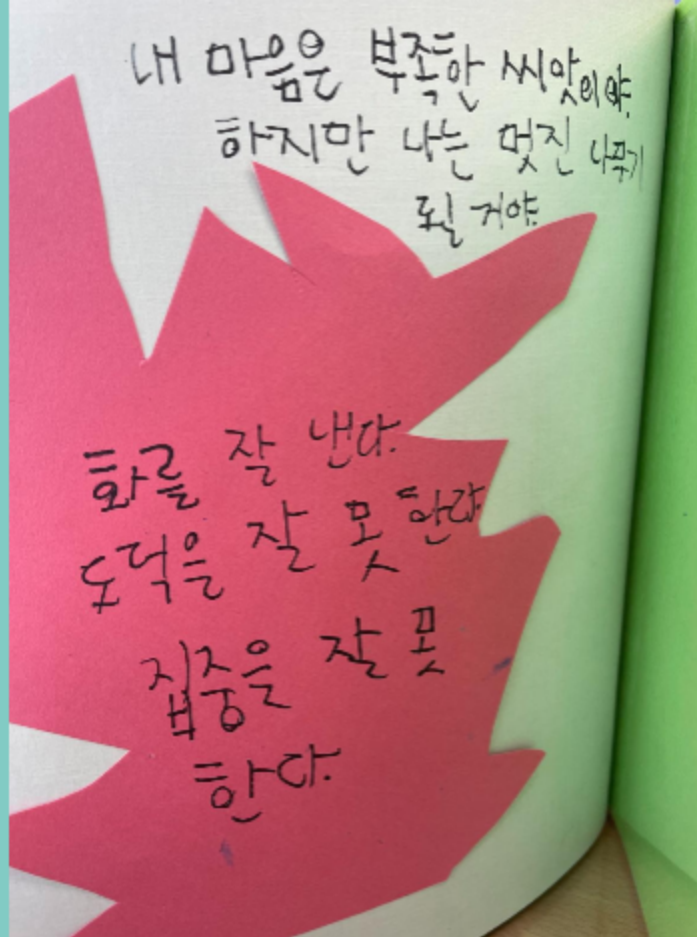 내 마음은 부족한 씨앗이야.
하지만 나는 멋진 나무가
될 거야.
화를 잘 낸다.
도덕을 잘 못한다.
집중을 잘 못
한다.